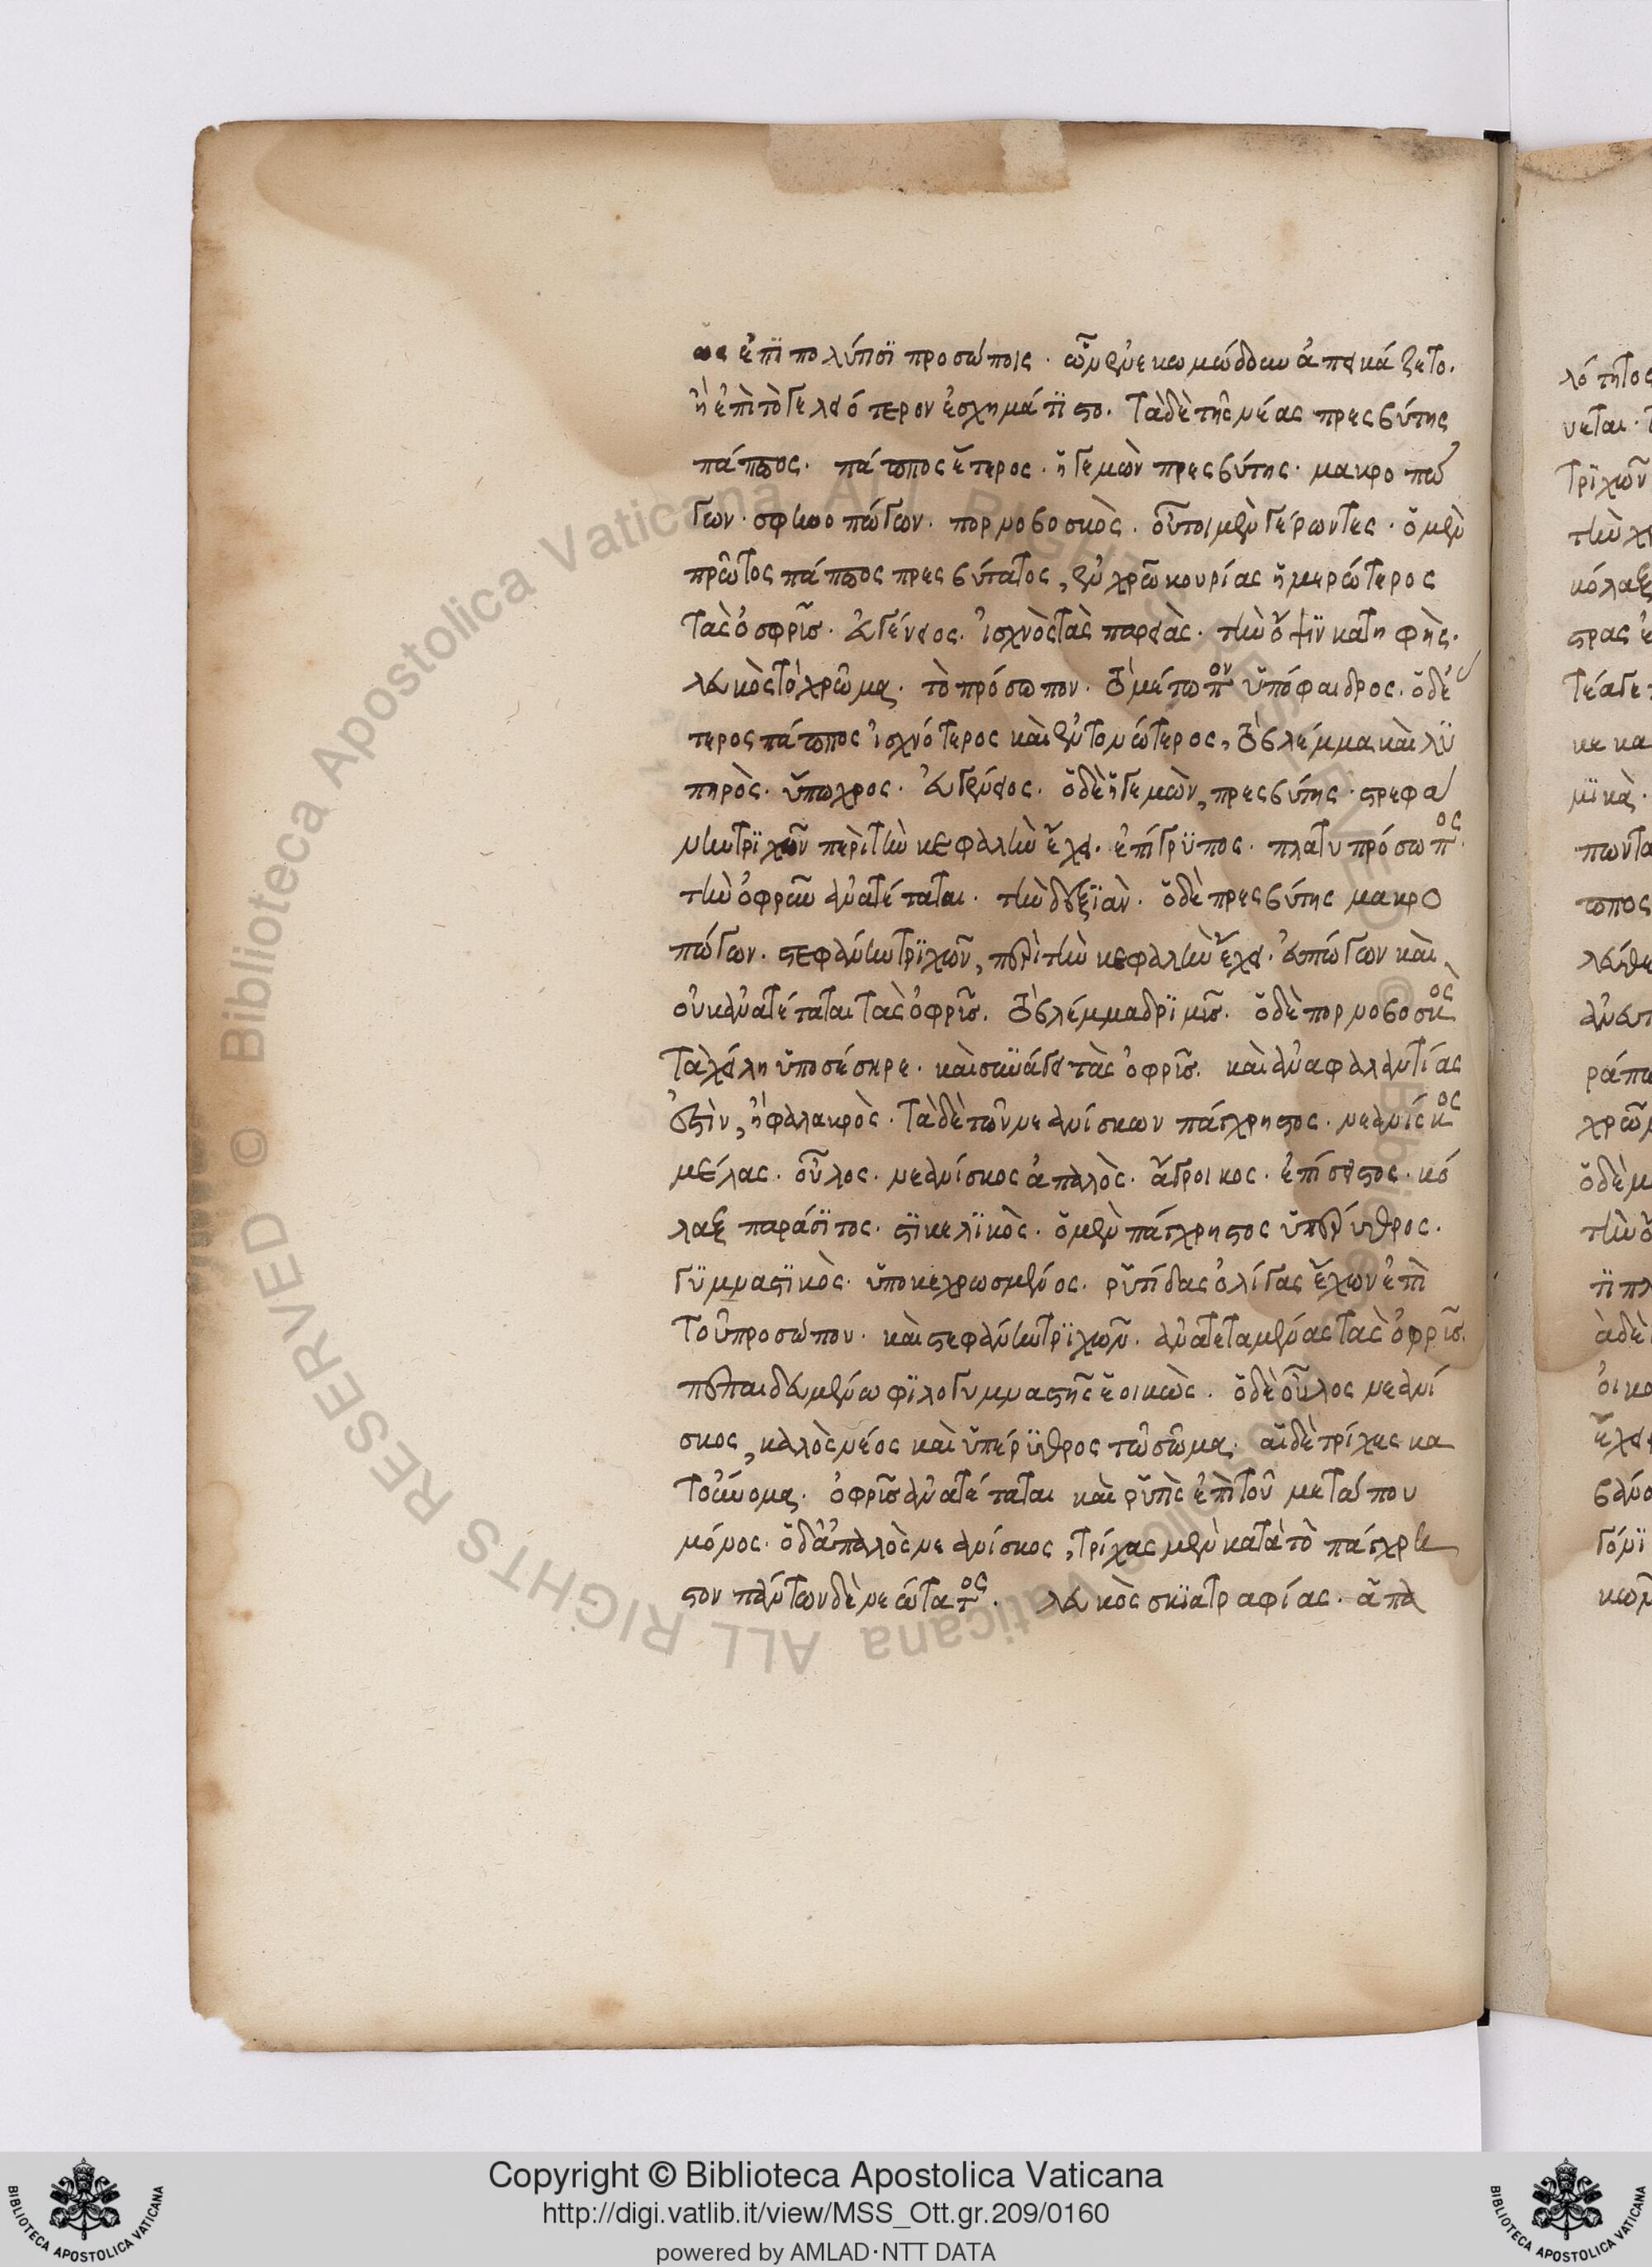 ως ἐπὶ πολύποσι προσώποις. ὧν ἐνεκωμώδουν ἀπεικάζετο.
ἢ ἐπὶ τὸ γελοιότερον ἐσχημάτιστο. τὰ δὲ τῆς νέας πρεσβύτης
πάππος. πάππος ἕτερος. ἡγεμὼν πρεσβύτης. μακροπώ
γων. σφηνοπώγων. πορνοβοσκὸς. οὗτοι μὲν γέρωντες. ὁ μὲν
πρῶτος πάππος πρεσβύτατος, ἐν χρῶ κουρίας ἡμερώτερος
τὰς ὀσφρῦς. εὐγένειος. ἰσχνὸς τὰς παρειὰς. τὴν ὄψιν κατηφὴς.
λευκὸς τὸ χρῶμα. τὸ πρόσωπον. τὸ μέτωπον ὑπόφαιδρος. ὁ δὲ
τερος πάππος ἰσχνότερος καὶ ἐντονώτερος, τὸ βλέμμα καὶ λυ
πηρὸς. ὕπωχρος. εὐγένειος. ὁ δὲ ἡγεμὼν, πρεσβύτης. στεφά
νην τριχῶν περὶ τὴν κεφαλὴν ἔχει. ἐπίγρυπος. πλατυπρόσωπος.
τὴν ὀφρῦν ἀνατέταται. τὴν δεξιὰν. ὁ δὲ πρεσβύτης μακρο
πώγων. στεφάνην τριχῶν, περὶ τὴν κεφαλὴν ἔχει. εὐπώγων καὶ
οὐκ ἀνατέταται τὰς ὀφρῦς. τὸ βλέμμα δριμῦς. ὁ δὲ πορνοβοσκὸς
τὰ χείλη ὑποσέσηρε. καὶ συνάγει τὰς ὀφρῦς. καὶ ἀναφαλαντίας
ἐστὶν, ἢ φαλακρὸς. τὰ δὲ τῶν νεανίσκων πάγχρηστος. νεανίσκος
μέλας. οὖλος. νεανίσκος ἁπαλὸς. ἄγροικος. ἐπίσειστος. κό
λαξ παράσιτος. σικελικὸς. ὁ μὲν πάγχρηστος ὑπέρυθρος.
γυμναστικὸς. ὑποκεχρωσμένος. ρυτίδας ὀλίγας ἔχων ἐπὶ
τοῦ προσώπου. καὶ στεφάνην τριχῶν. ἀνατεταμένας τὰς ὀφρῦς.
πεπαιδευμένω φιλογυμναστῆς ἐοικὼς. ὁ δὲ οὖλος νεανί
σκος, καλὸς νέος καὶ ὑπέρυθρος τῶ σῶμα. αἱ δὲ τρίχες κα
τοὔνομα. ὀφρῦς ἀνατέταται καὶ ρυτὶς ἐπὶ τοῦ μετώπου
μόνος. ὁ δ' ἁπαλὸς νεανίσκος, τρίχας μὲν κατὰ τὸ πάγχρη
στον πάντων δὲ νεώτατος. λευκὸς σκιατραφίας. ἁπα
Copyright © Biblioteca Apostolica Vaticana
http://digi.vatlib.it/view/MSS_Ott.gr.209/0160
powered by AMLAD·NTT DATA